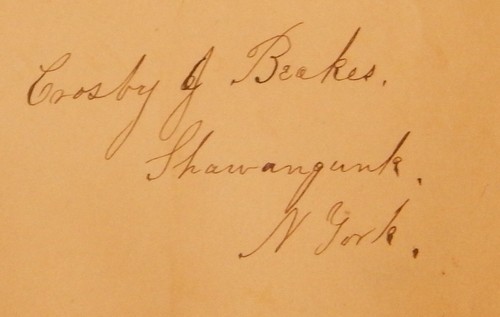 Crosby J Beakes.
Shawangunk.
N York.